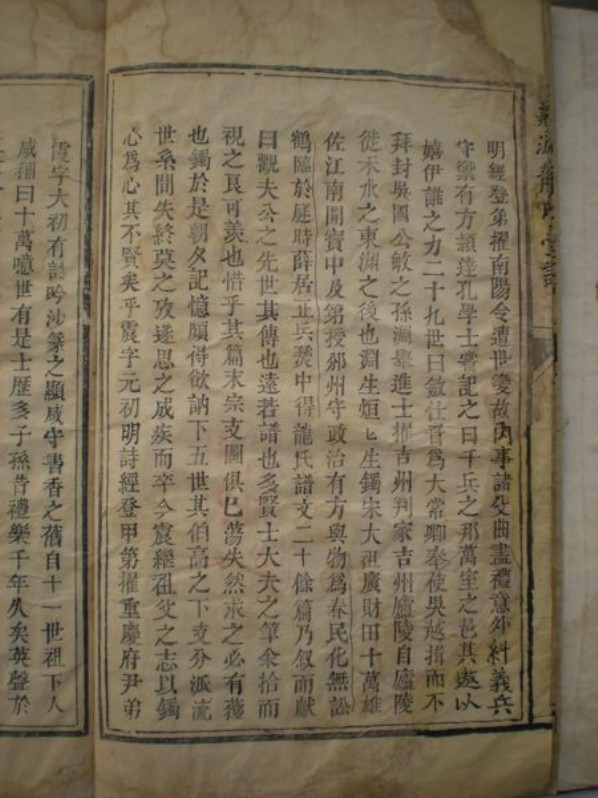 明經登第擢南陽令遭世變故內事諸父曲盡禮意外糾義兵
守禦有方頴達孔學士嘗記之曰千兵之那萬室之邑其遂以
嬉伊誰之力二十九世曰斂仕晉爲大常卿奉使吳越揖而不
拜封吳國公敏之孫淵舉進士擢吉州判家吉州廬陵自廬陵
徙禾水之東淵之後也淵生烜匕生鐲宋大祖廣財田十萬雄
佐江南開寶中及第授邠州守政治有方與物爲春民化無訟
鶴臨於庭時薛居正兵燹中得龍氏譜文二十餘篇乃叙而獻
曰觀夫公之先世其傳也遠若譜也多賢士大夫之筆余拾而
視之良可羡也惜乎其篇末宗支圖俱已蕩失然求之必有獲
也鐲於是朝夕記憶頗得欲訥下五世其伯高之下支分派流
世系間失終莫之攷遂思之成疾而卒今震繼祖父之志以鐲
心爲心其不賢矣乎震字元初明詩經登甲第擢重慶府尹弟
霞字大初有詩吟沙篆之顯咸守書香之舊自十一世祖下人
咸稱曰十萬噫世有是士歷多子孫昔禮樂千年久矣英聲於